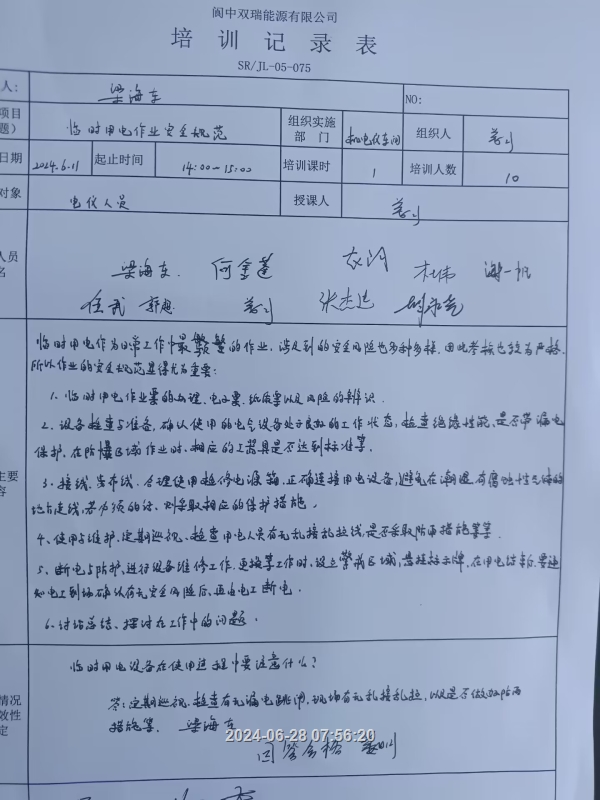 阆中双瑞能源有限公司
培训记录表
SR/JL-05-075
人: 梁海东 NO:
项目 题) 临时用电作业安全规范 组织实施部门 电仪车间 组织人
日期 2024.6.11 起止时间 14:00-15:00 培训课时 1 培训人数 10
对象 电仪人员 授课人
人员 名
梁海东 何金莲 谢一帆
任武 张杰
临时用电作为日常工作中最繁繁的作业,涉及到的安全风险也多种多样,因此考核也较为严格,
所以作业的安全规范显得尤为重要:
1、临时用电作业票的办理、电子票、纸质票以及风险的辨识.
2、设备检查与准备,确认使用的电气设备处于良好的工作状态,检查绝缘性能、是否带漏电
保护,在防爆区域作业时,相应的工器具是否达到标准等.
3、接线与布线,合理使用检修电源箱,正确连接用电设备,避免在潮湿有腐蚀性气体的
地方走线,若必须的话,则采取相应的保护措施。
4、使用与维护,定期巡视、检查用电人员有无乱接乱拉线,是否采取防雨措施等等.
5、断电与防护,进行设备维修工作,更换等工作时,设立警戒区域,悬挂标示牌,在用电结束后,要通
知电工到场确认有无安全风险后,再由电工断电.
6、讨论总结、探讨在工作中的问题.
主要 容
临时用电设备在使用过程中要注意什么?
答:定期巡视、检查有无漏电跳闸,现场有无乱接乱拉,以及是否做好防雨
措施等. 梁海东
情况 效性 定
2024-06-28 07:56:20
回答合格